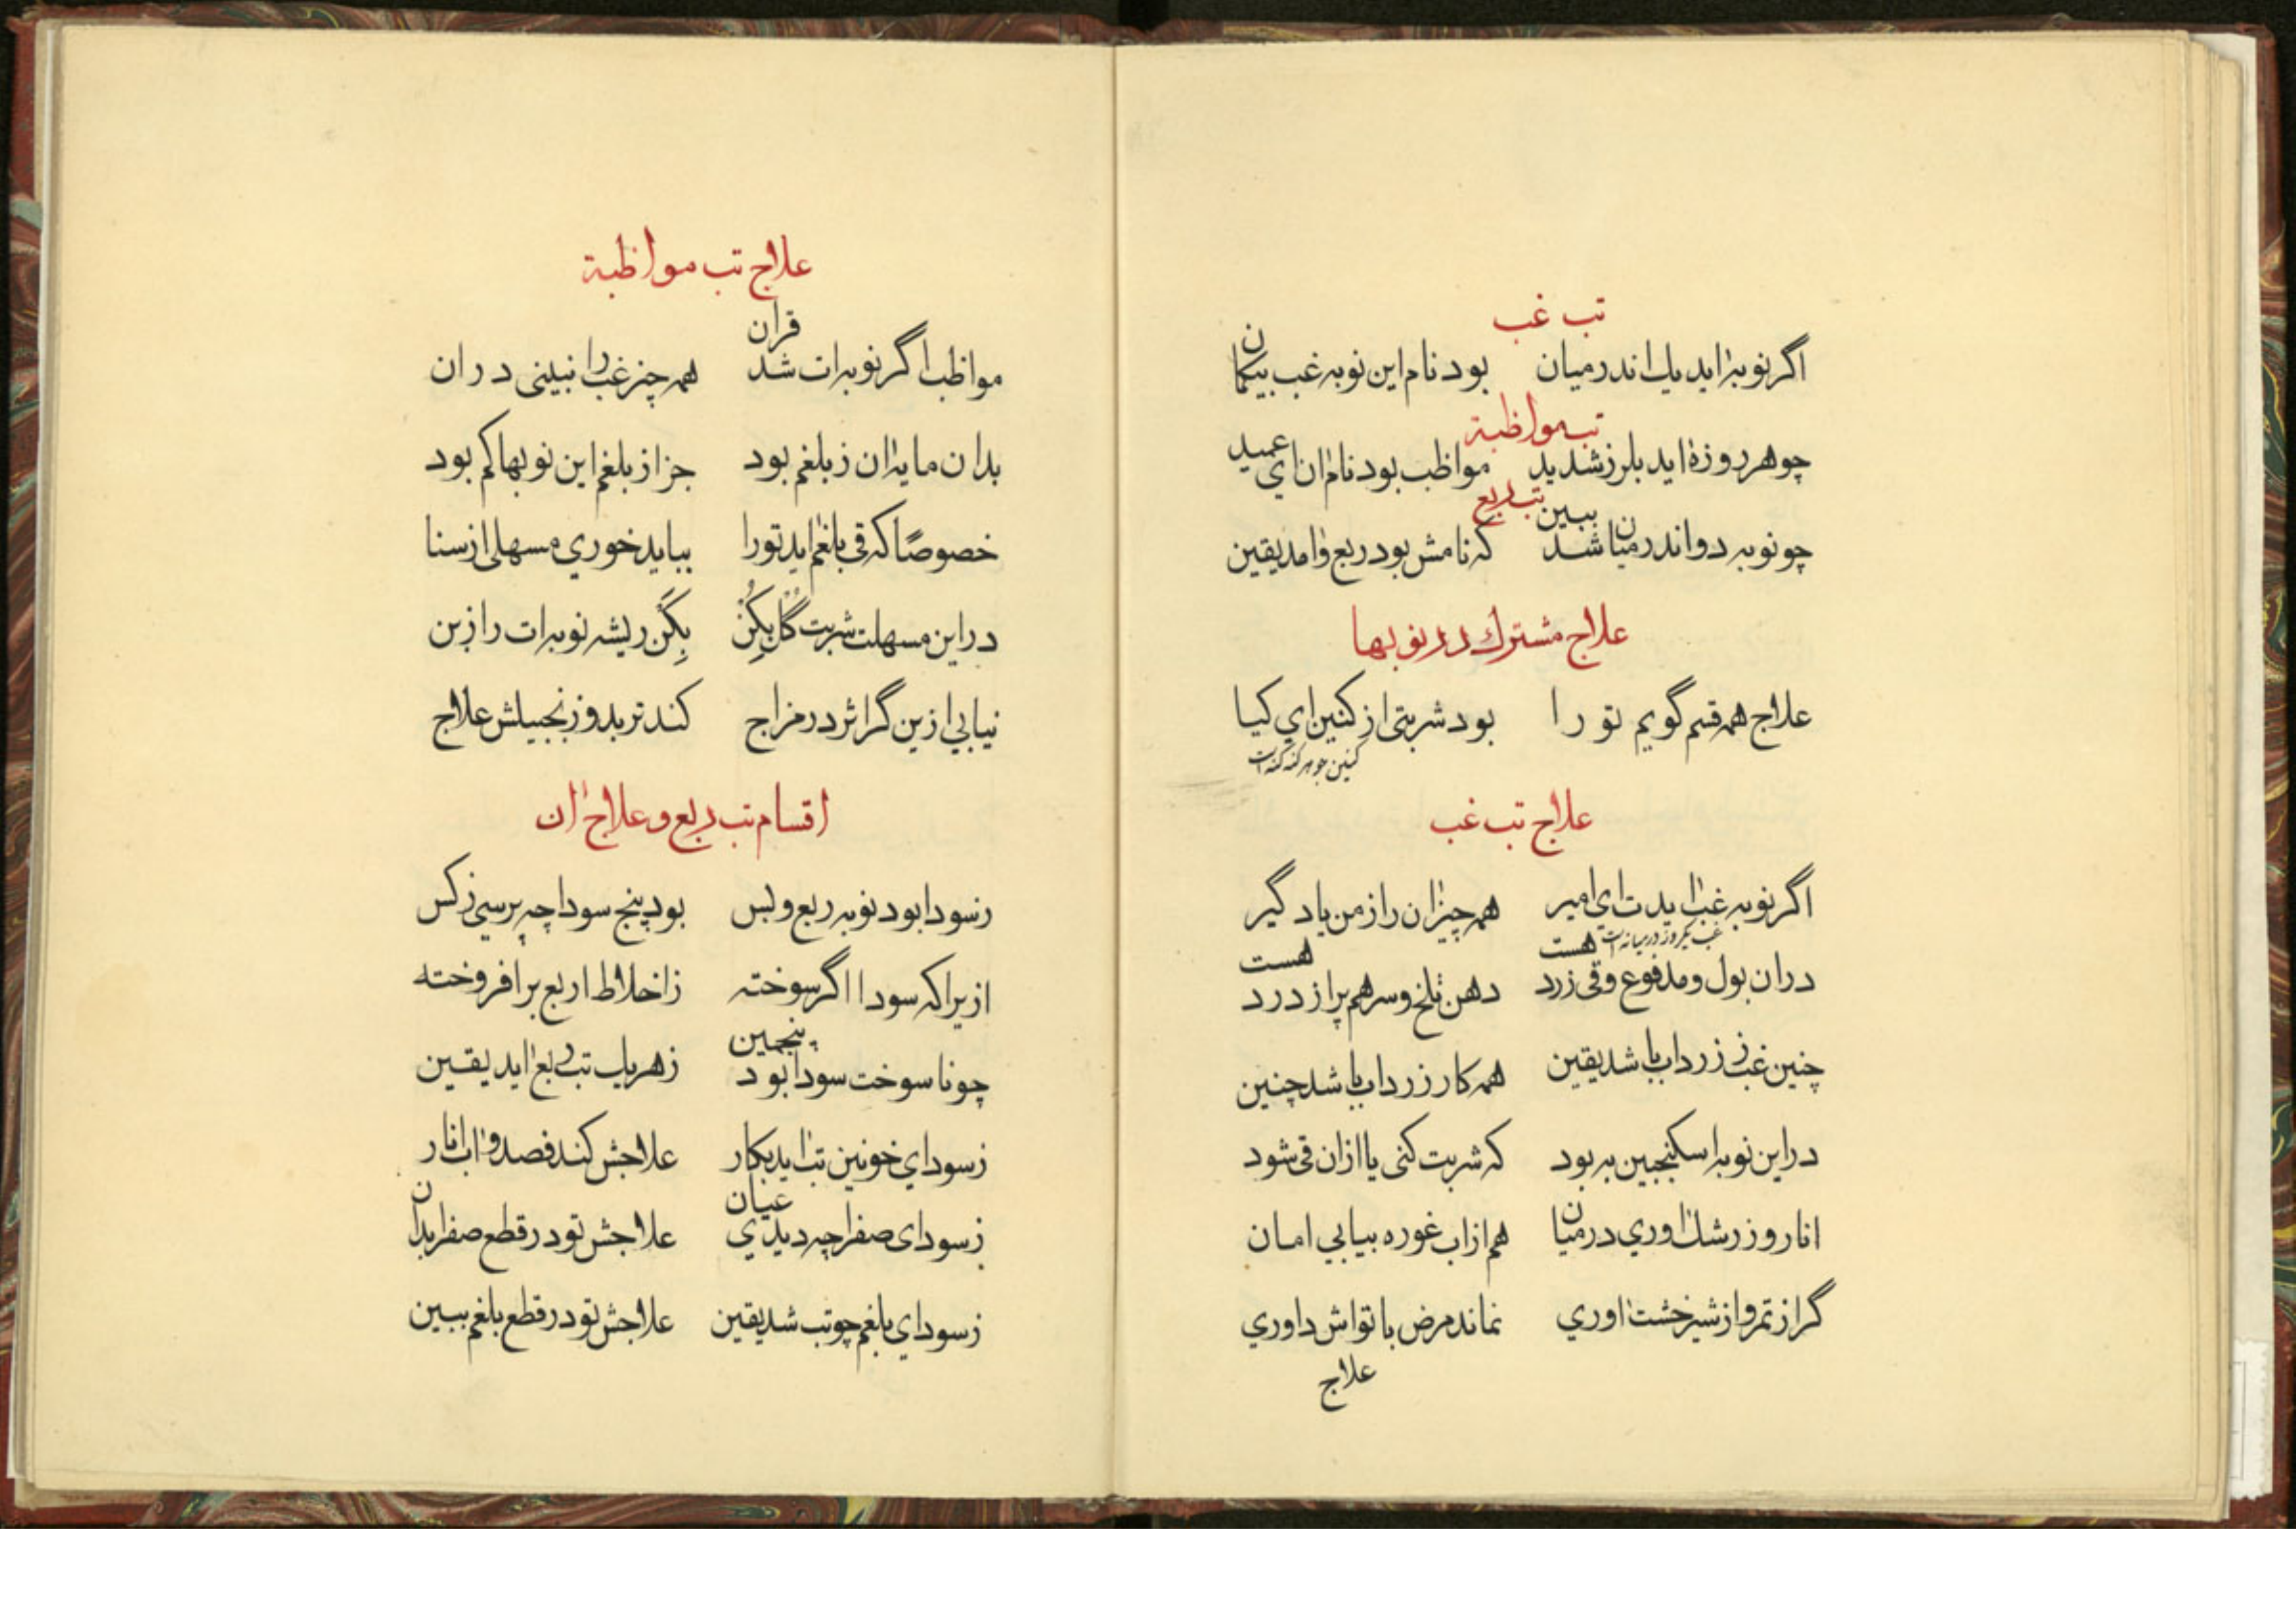 تب غب
اگر نوبه اید یک اندر میان بود نام این نوبه غب بیکمان
تب مواظبة
چو هر روزه اید بلرز شدید مواظب بود نام ان ای عمید
تب ربع
چو نوبه دو اندر میان شد ببین که نامش بود ربع و امد یقین
علاج مشترك در نوبها
علاج همه قسم گویم تو را بود شربتی از کنین ای کیا
کنین جوهر کنه کنه است
علاج تب غب
اگر نوبه غب ایدت ای امیر همه چیز ان را ز من یاد گیر
غب یکروز در میانه است
در ان بول و مدفوع و قی زرد هست دهن تلخ و سر هم پر از درد هست
چنین غب ز زرداب باشد یقین همه کار زرداب باشد چنین
در این نوبه اسکنجبین به بود که شربت کنی یا ازان قی شود
انار و زرشك اوری در میان هم از اب غوره بیابی امان
گر از تمر و از شیرخشت اوری نماند مرض با تواش داوری
علاج
علاج تب مواظبة
مواظب اگر نوبه ات شد قران همه چیز غب را نبینی در ان
بدان مایه ان ز بلغم بود جز از بلغم این نوبها کم بود
خصوصًا که قی بلغم اید تورا بباید خوری مسهلی از سنا
در این مسهلت شربت گل بکن بکن ریشه نوبه ات را ز بن
نیابی ازین گر اثر در مزاج کند تربد و زنجبیلش علاج
اقسام تب ربع و علاج ان
ز سودا بود نوبه ربع و بس بود پنج سودا چه پرسی ز کس
ازیرا که سودا اگر سوخته ز اخلاط اربع بر افروخته
چو نا سوخت سودا بود پنجمین ز هر یك تب ربع اید یقین
ز سودای خونین تب اید بکار علاجش کند فصد و اب انار
ز سودای صفرا چه دیدی عیان علاجش تو در قطع صفرا بدان
ز سودای بلغم چو تب شد یقین علاجش تو در قطع بلغم ببین